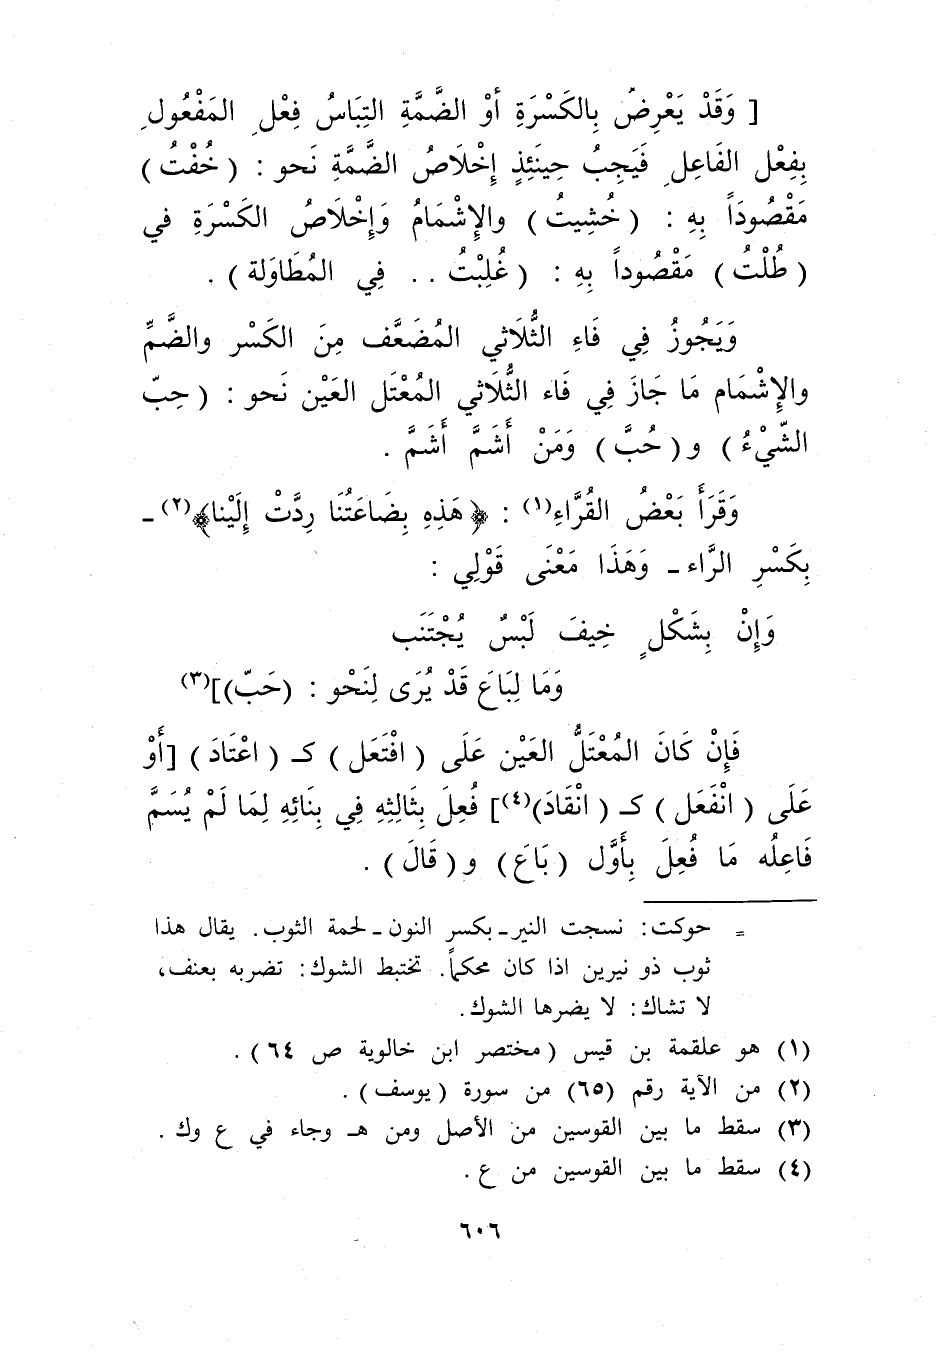 [ وَقَدْ يَعْرِضُ بِالكَسْرَةِ أوْ الضَّمَّةِ التِبَاسُ فِعْلِ المَفْعُولِ
بِفِعْلِ الفَاعِلِ فَيَجِبُ حِينَئِذٍ إخْلَاصُ الضَّمَّةِ نَحو : ( خُفْتُ )
مَقْصُودَاً بِهِ : ( خُشِيتُ ) والإشْمَامُ وَإخْلَاصُ الكَسْرَةِ في
( طُلْتُ ) مَقْصُوداً بِهِ : ( غُلِبْتُ . . فِي المُطَاوَلة ) .
وَيَجُوزُ فِي فَاءِ الثُّلَاثي المُضَعَّف مِنَ الكَسْر والضَّمِّ
والإشْمَام مَا جَازَ فِي فَاء الثُّلَاثي المُعْتَل العَيْن نَحو : ( حِبّ
الشّيْءُ ) و ( حُبَّ ) وَمَنْ أشَمَّ أشَمَّ .
وَقَرَأ بَعْضُ القُرَّاءِ(١) : ﴿ هَذِهِ بِضَاعَتُنَا رِدَّتْ إلَيْنا﴾(٢) -
بِكَسْرِ الرَّاء - وَهَذَا مَعْنَى قَوْلِي :
وَإنْ بِشَكْلٍ خِيفَ لَبْسٌ يُجْتَنَب
وَمَا لِبَاعَ قَدْ يُرَى لِنَحْو : (حَبّ)](٣)
فَإنْ كَانَ المُعْتَلُّ العَيْن عَلَى ( افْتَعَل ) كـ ( اعْتَادَ ) [أوْ
عَلَى ( انْفَعَل ) كـ ( انْقَادَ)(٤)] فُعِلَ بِثَالِثِهِ فِي بِنَائِهِ لِمَا لَمْ يُسَمَّ
فَاعِلُه مَا فُعِلَ بِأوَّل (بَاعَ) و ( قَالَ ) .
= حوكت: نسجت النير - بكسر النون - لحمة الثوب. يقال هذا
ثوب ذو نيرين اذا كان محكماً. تختبط الشوك: تضربه بعنف،
لا تشاك: لا يضرها الشوك.
(١) هو علقمة بن قيس ( مختصر ابن خالوية ص ٦٤ ) .
(٢) من الآية رقم (٦٥) من سورة ( يوسف ) .
(٣) سقط ما بين القوسين من الأصل ومن هـ وجاء في ع وك .
(٤) سقط ما بين القوسين من ع .
٦٠٦